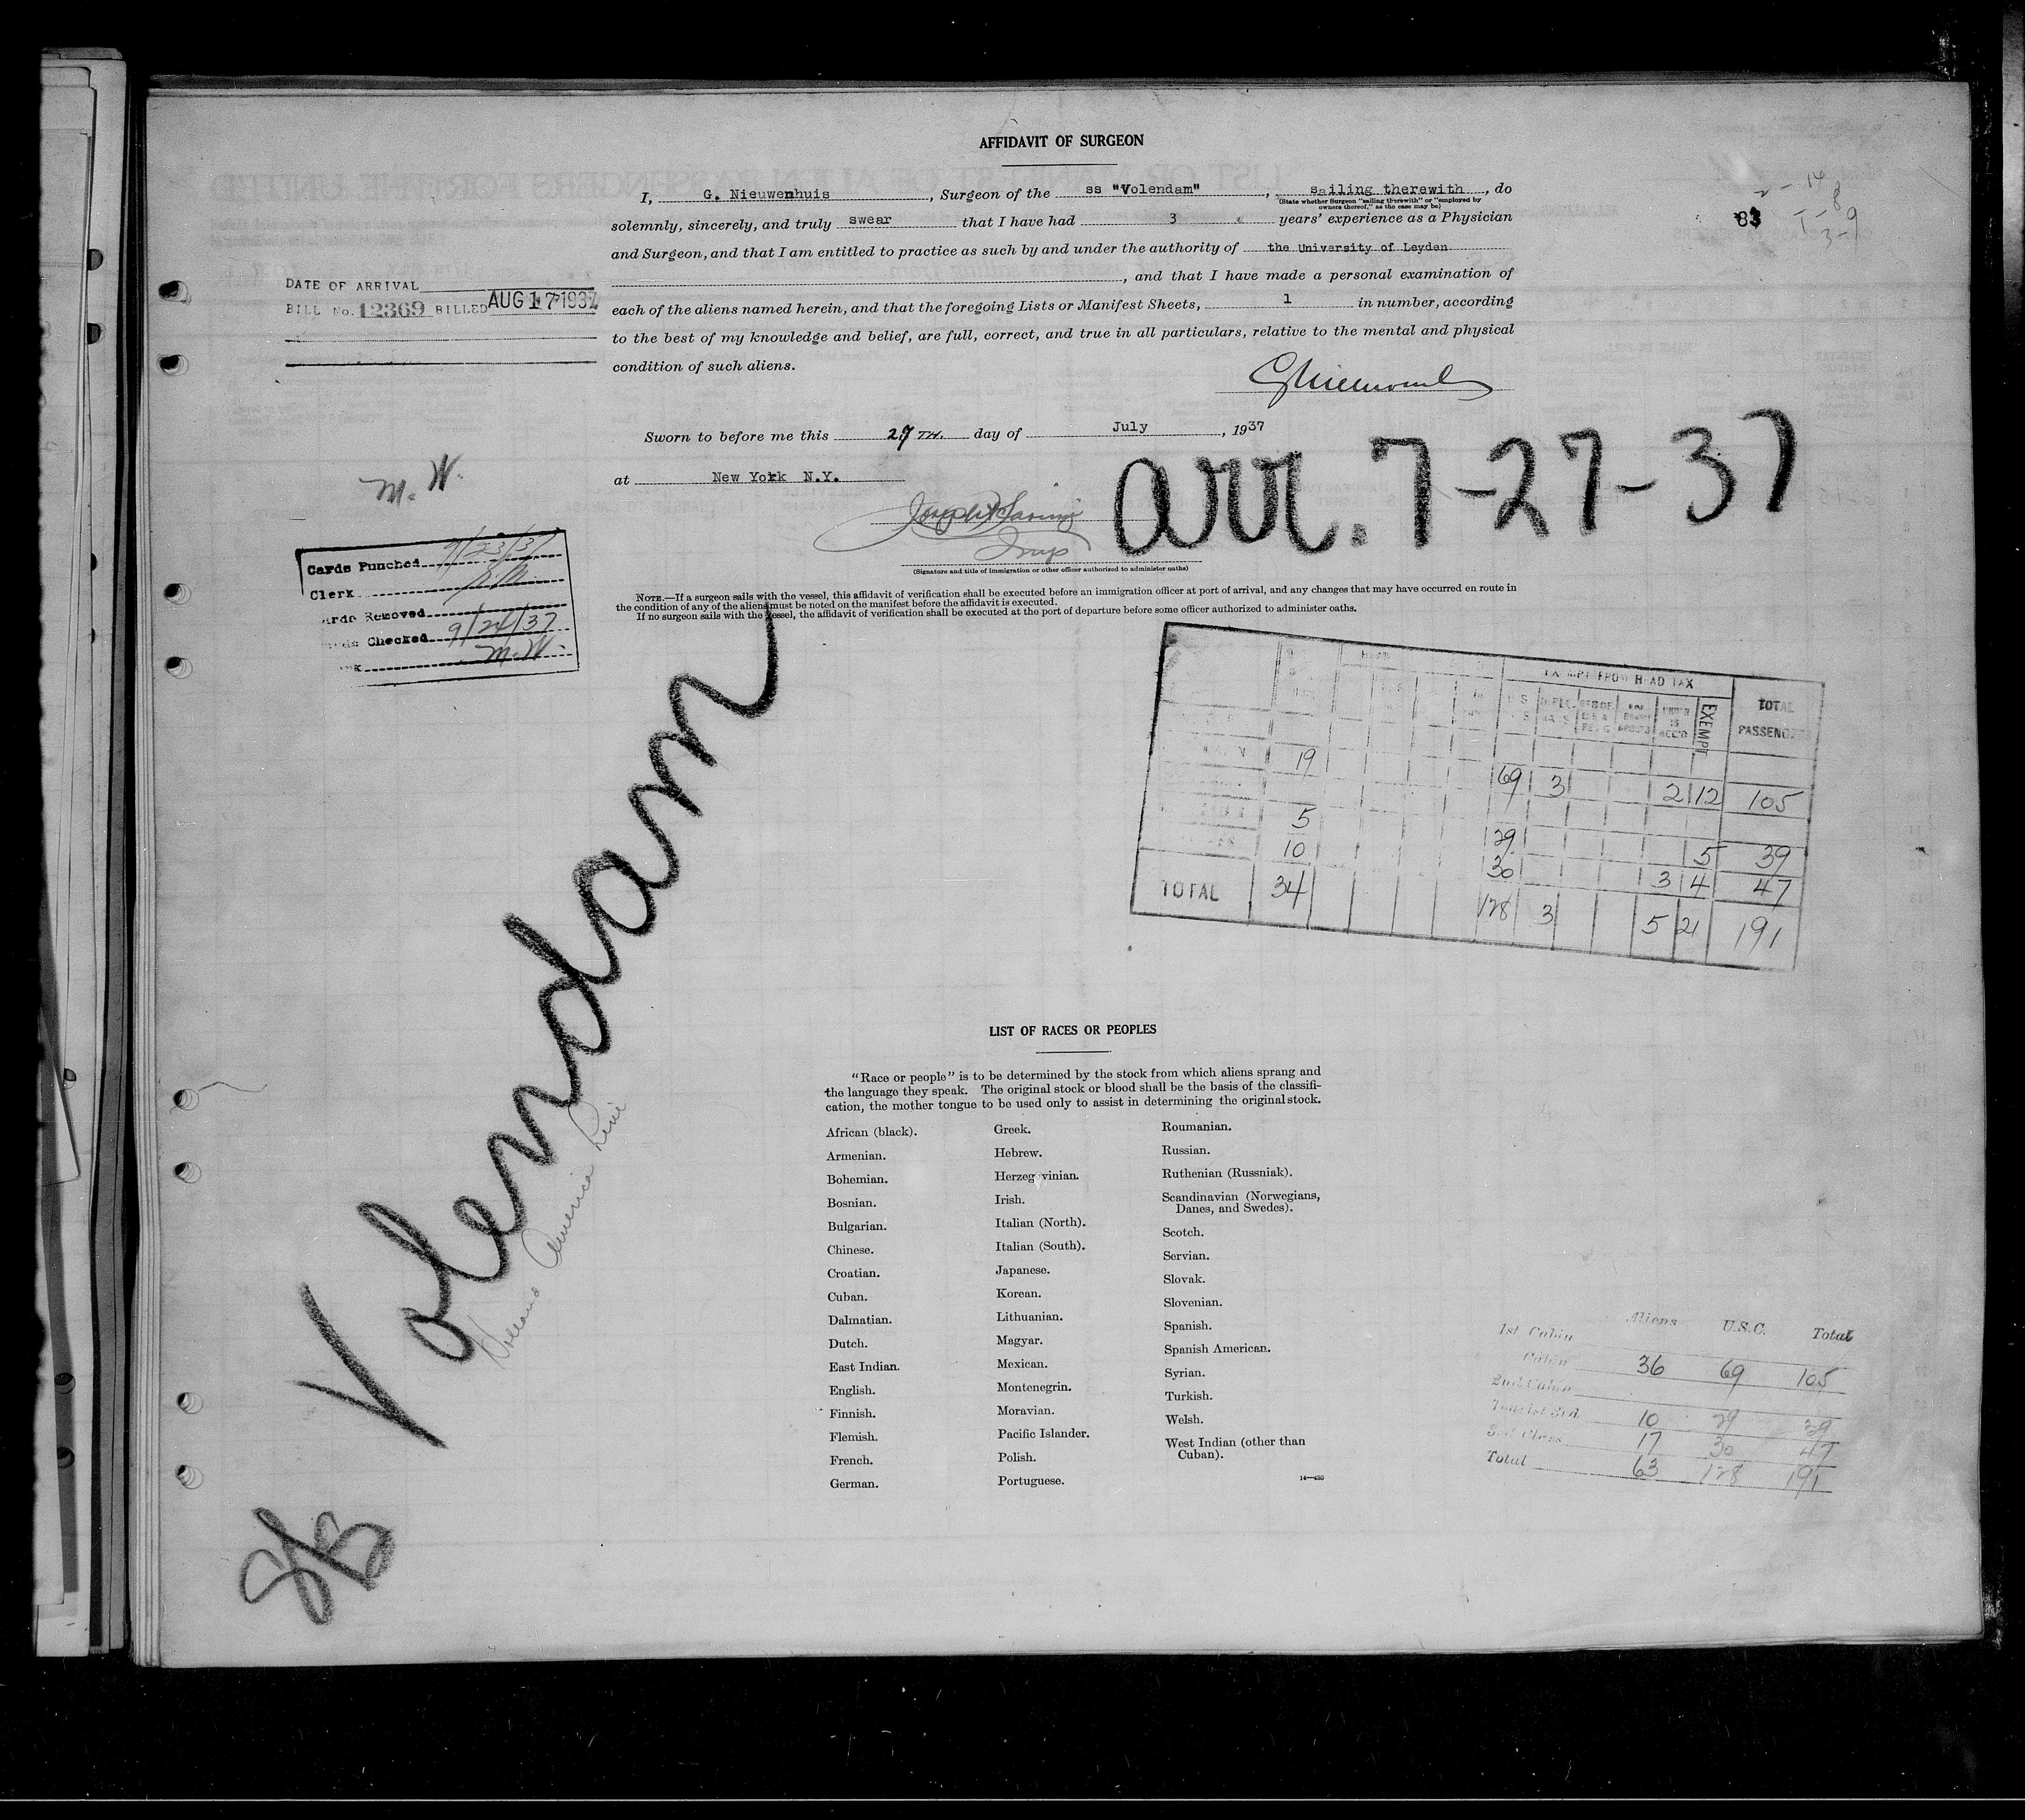 AFFIDAVIT OF SURGEON
I, G. Nieuwenhuis, Surgeon of the ss "Volendam", sailing therewith, do
(State whether Surgeon "sailing therewith" or "employed by
owners thereof," as the case may be)
solemnly, sincerely, and truly swear that I have had 3 years' experience as a Physician
and Surgeon, and that I am entitled to practice as such by and under the authority of the University of Leyden
, and that I have made a personal examination of
each of the aliens named herein, and that the foregoing Lists or Manifest Sheets, 1 in number, according
to the best of my knowledge and belief, are full, correct, and true in all particulars, relative to the mental and physical
condition of such aliens.
DATE OF ARRIVAL
BILL No. 12369 BILLED AUG 17 1937
Sworn to before me this 27 TH. day of July, 1937
at New York N.Y.
arr. 7-27-37
Insp
(Signature and title of immigration or other officer authorized to administer oaths)
M. W.
Cards Punched 9/23/37
Clerk
Removed
Checked 9/24/37
M. W.
NOTE.—If a surgeon sails with the vessel, this affidavit of verification shall be executed before an immigration officer at port of arrival, and any changes that may have occurred en route in
the condition of any of the aliens must be noted on the manifest before the affidavit is executed.
If no surgeon sails with the vessel, the affidavit of verification shall be executed at the port of departure before some officer authorized to administer oaths.
EXEMPT FROM HEAD TAX
EXEMPT
TOTAL
PASSENGERS
19 69 3 2 12 105
5 29 5 39
10 30 3 4 47
TOTAL 34 128 3 5 21 191
Volendam
Holland America Line
LIST OF RACES OR PEOPLES
"Race or people" is to be determined by the stock from which aliens sprang and
the language they speak. The original stock or blood shall be the basis of the classifi-
cation, the mother tongue to be used only to assist in determining the original stock.
African (black).
Armenian.
Bohemian.
Bosnian.
Bulgarian.
Chinese.
Croatian.
Cuban.
Dalmatian.
Dutch.
East Indian.
English.
Finnish.
Flemish.
French.
German.
Greek.
Hebrew.
Herzeg vinian.
Irish.
Italian (North).
Italian (South).
Japanese.
Korean.
Lithuanian.
Magyar.
Mexican.
Montenegrin.
Moravian.
Pacific Islander.
Polish.
Portuguese.
Roumanian.
Russian.
Ruthenian (Russniak).
Scandinavian (Norwegians,
Danes, and Swedes).
Scotch.
Servian.
Slovak.
Slovenian.
Spanish.
Spanish American.
Syrian.
Turkish.
Welsh.
West Indian (other than
Cuban).
14—430
Aliens U.S.C. Total
1st Cabin
Cabin 36 69 105
2nd Cabin
Tourist 3rd 10 29 39
3rd Class 17 30 47
Total 63 128 191